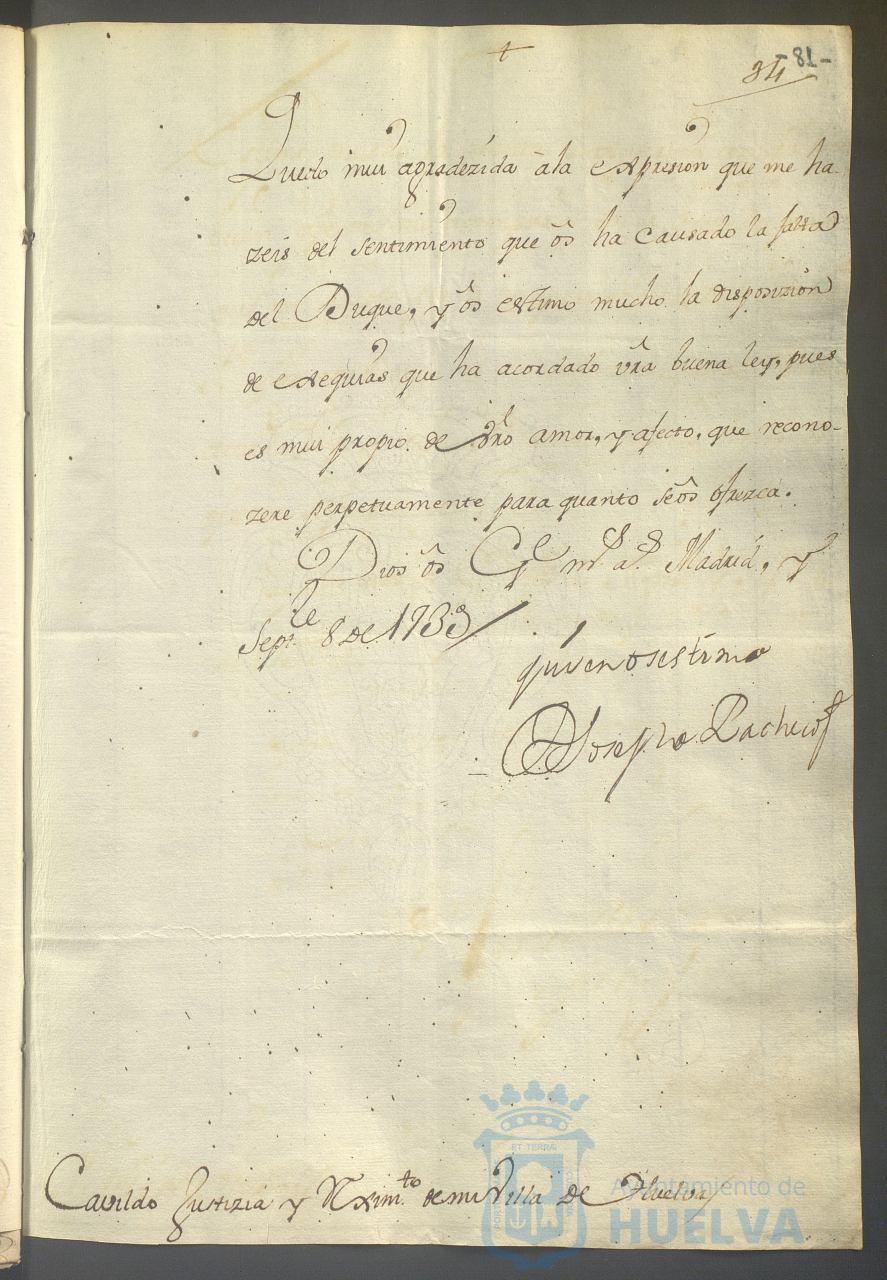 +
34 81-
Quedo mui agradezida à la expresion que me ha-
zeis del sentimiento que ôs ha causado la falta
del Duque, y ôs estimo mucho la disposizion
de exequias que ha acordado vrâ buena ley, pues
es mui propio de vrô amor, y afecto, que recono-
zere perpetuamente para quanto se ôs ofrezca.
Dios ôs Gᵉ mˢ aˢ Madrid, y
Sepᵗᵉ 8 de 1733
quien os estima
Josepha Pacheco
Cavildo Justizia y Reximᵗᵒ de mi Villa de Huelva
ET TERRÆ
Ayuntamiento de
HUELVA